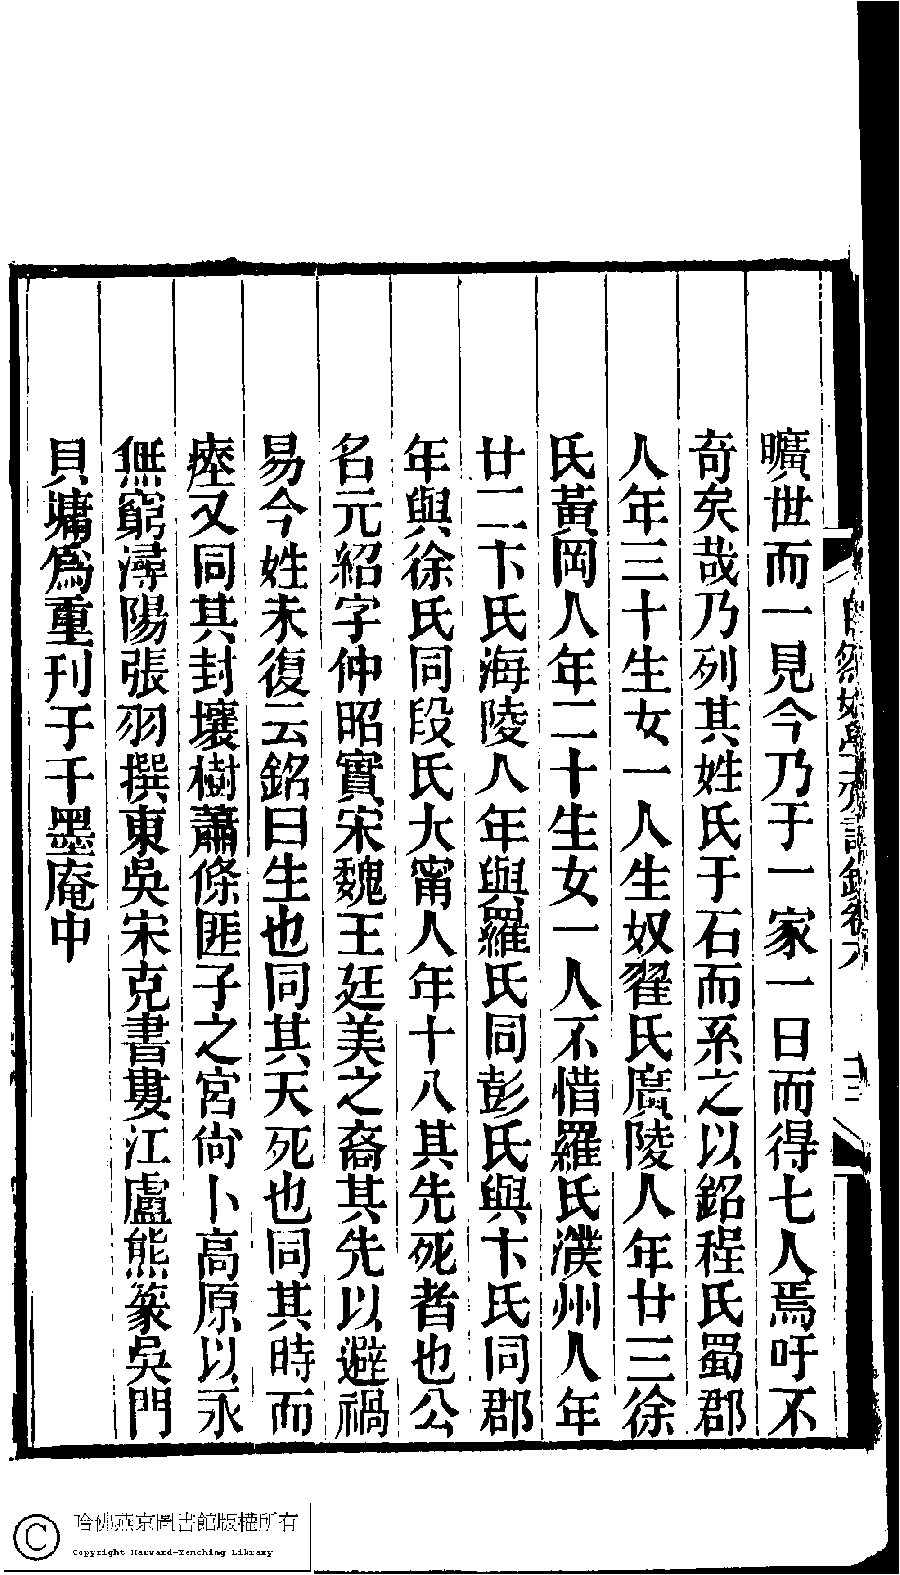 曠世而一見今乃于一家一日而得七人焉吁不
奇矣哉乃列其姓氏于石而系之以銘程氏蜀郡
人年三十生女一人生奴翟氏廣陵人年廿三徐
氏黃岡人年二十生女一人不惜羅氏濮州人年
廿二卞氏海陵人年與羅氏同彭氏與卞氏同郡
年與徐氏同段氏大甯人年十八其先死者也公
名元紹字仲昭實宋魏王廷美之裔其先以避禍
易今姓未復云銘曰生也同其天死也同其時而
瘞又同其封壤樹蕭條匪子之宮尙卜高原以永
無窮潯陽張羽撰東吳宋克書婁江盧熊篆吳門
貝墉爲重刊于千墨庵中
哈佛燕京圖書館版權所有
Copyright Harvard-Yenching Library